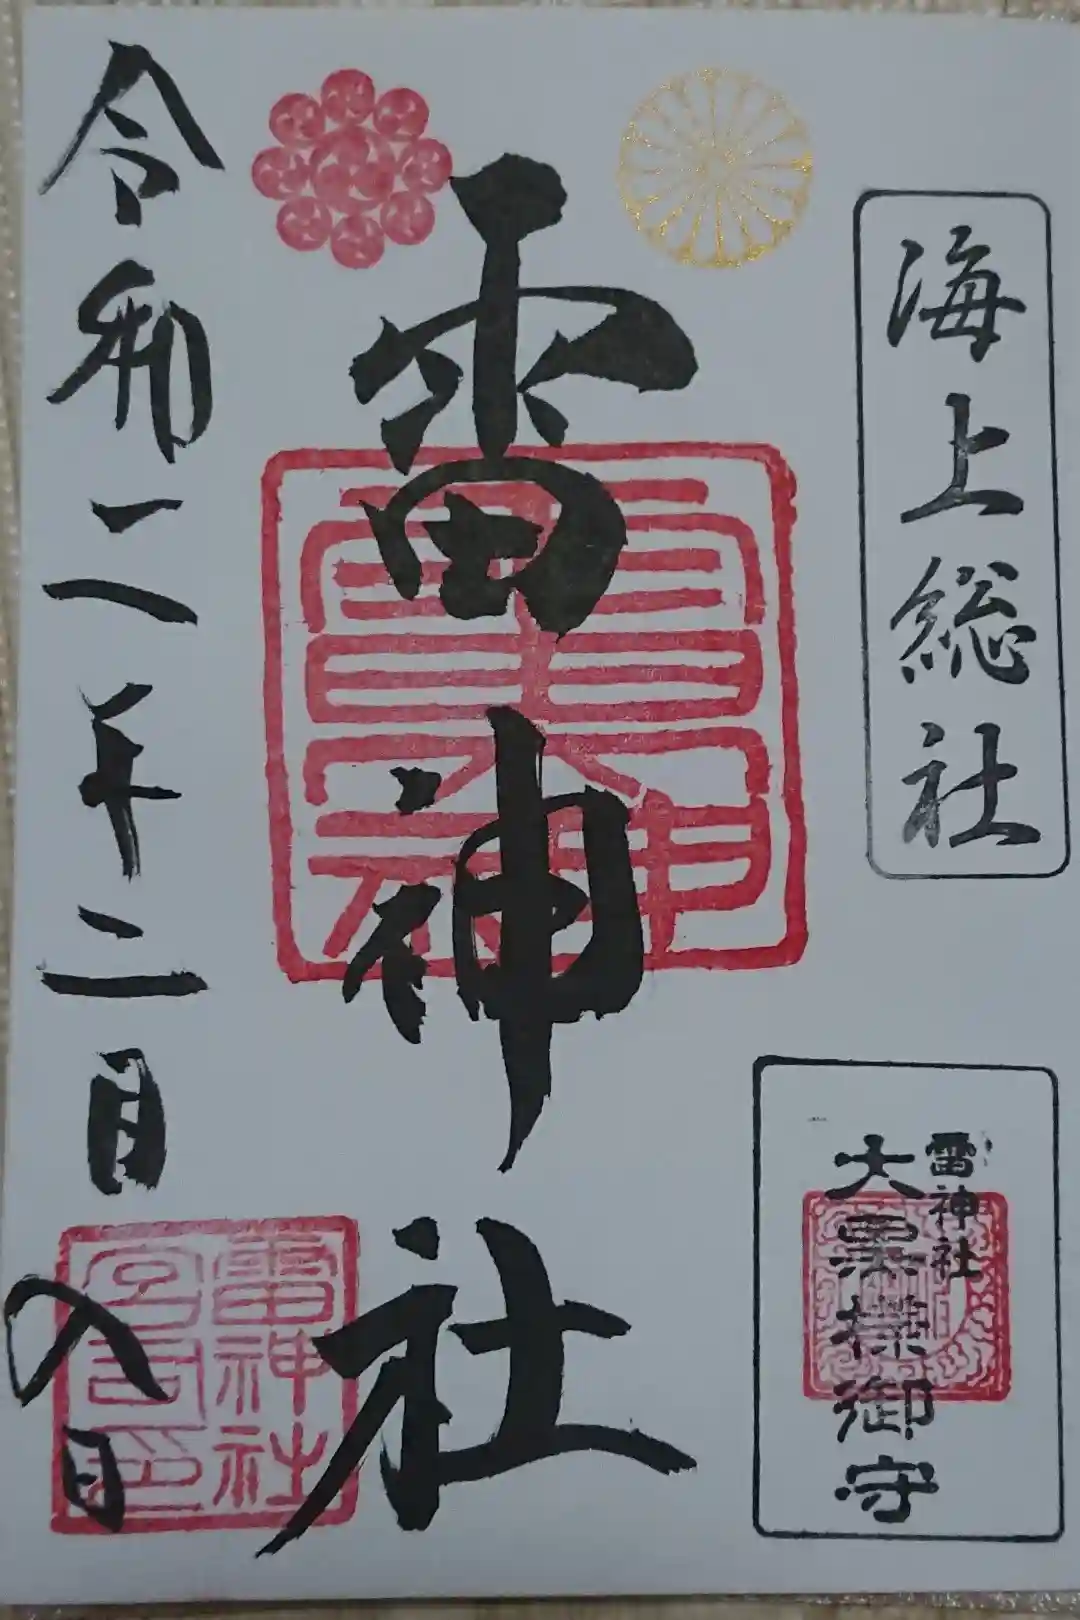 海上総社
雷神社
令和二年二月八日
雷神社
大黒様御守
雷神社
宮司印